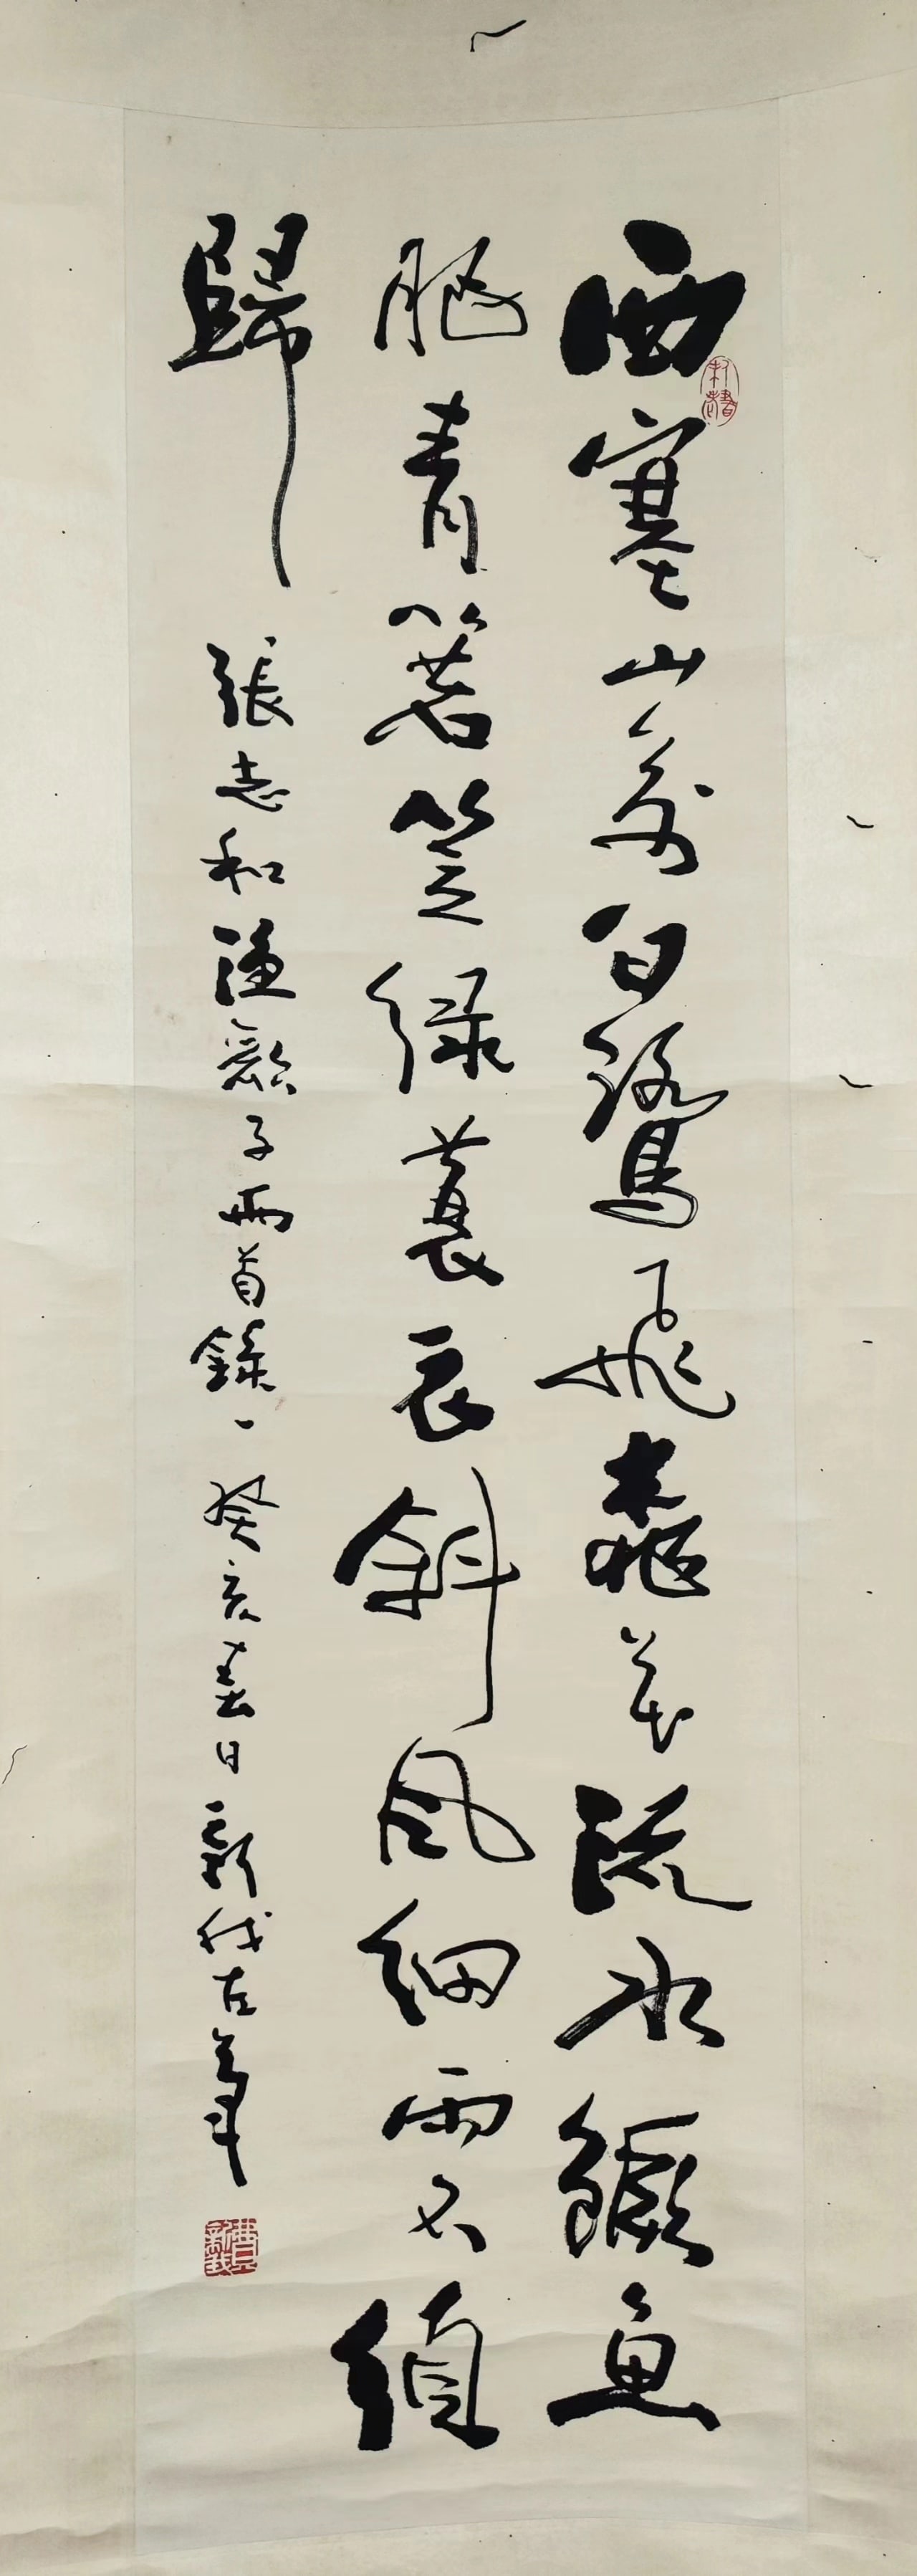 西塞山前白鷺飛桃花流水鱖魚
肥青箬笠綠蓑衣斜風細雨不須
歸
張志和漁歌子兩首錄一 癸亥春日新我左筆
費新我